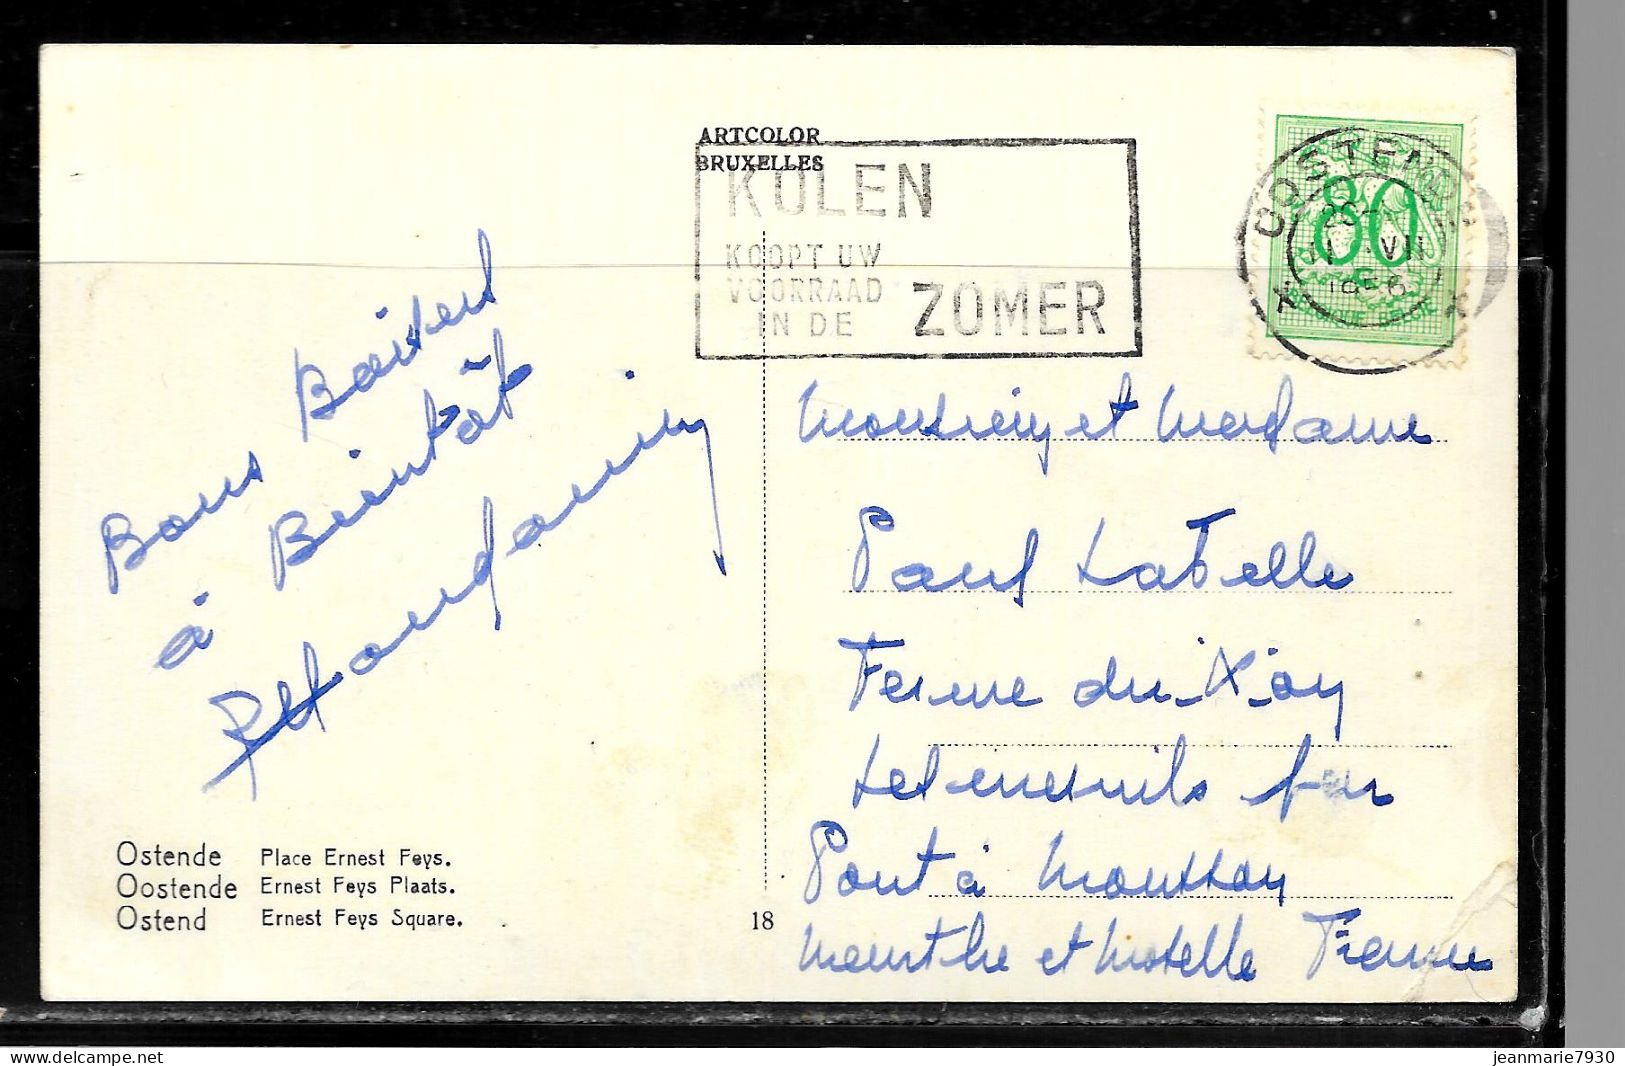 ARTCOLOR
BRUXELLES
KOLEN
KOOPT UW
VOORRAAD
IN DE ZOMER
OOSTENDE
VII
80
BELGIQUE BELGIE
Bons Baisers
à Bientôt
Monsieur et Madame
Paul
Ferme du
par
Pont à Mousson
Meurthe et Moselle France
Ostende Place Ernest Feys.
Oostende Ernest Feys Plaats.
Ostend Ernest Feys Square.
18
www.delcampe.net
jeanmarie7930